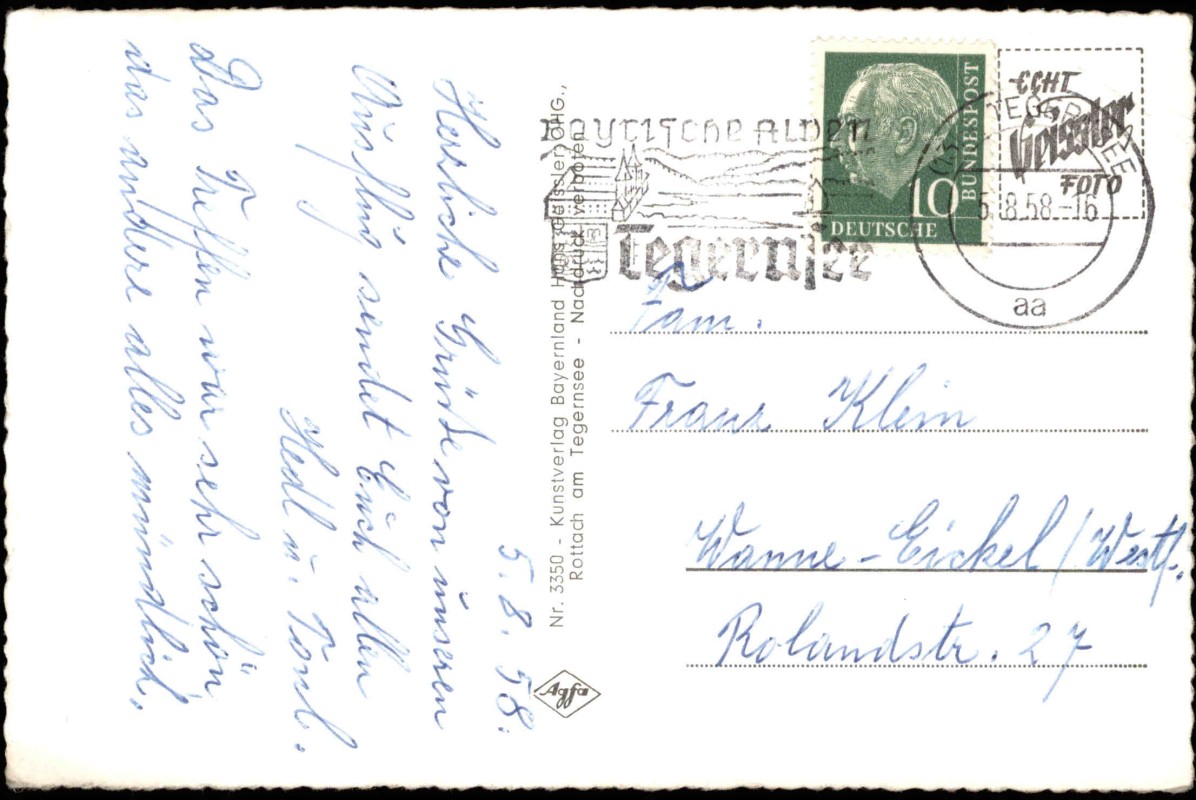 5. 8. 58.
Herzliche Grüße von unserem
Ausflug sendet Euch allen
Hedl u. Toni.
Das Treffen war sehr schön
das andere alles mündlich.
Nr. 3350 - Kunstverlag Bayernland Hans Geissler OHG.,
Rottach am Tegernsee - Nachdruck verboten
Agfa
Bayrische Alpen
Tegernsee
BUNDESPOST
10
DEUTSCHE
ECHT
Geissler
FOTO
TEGERNSEE
5.8.58.-16
aa
Fam.
Franz Klein
Wanne-Eickel/Westf.
Rolandstr. 27